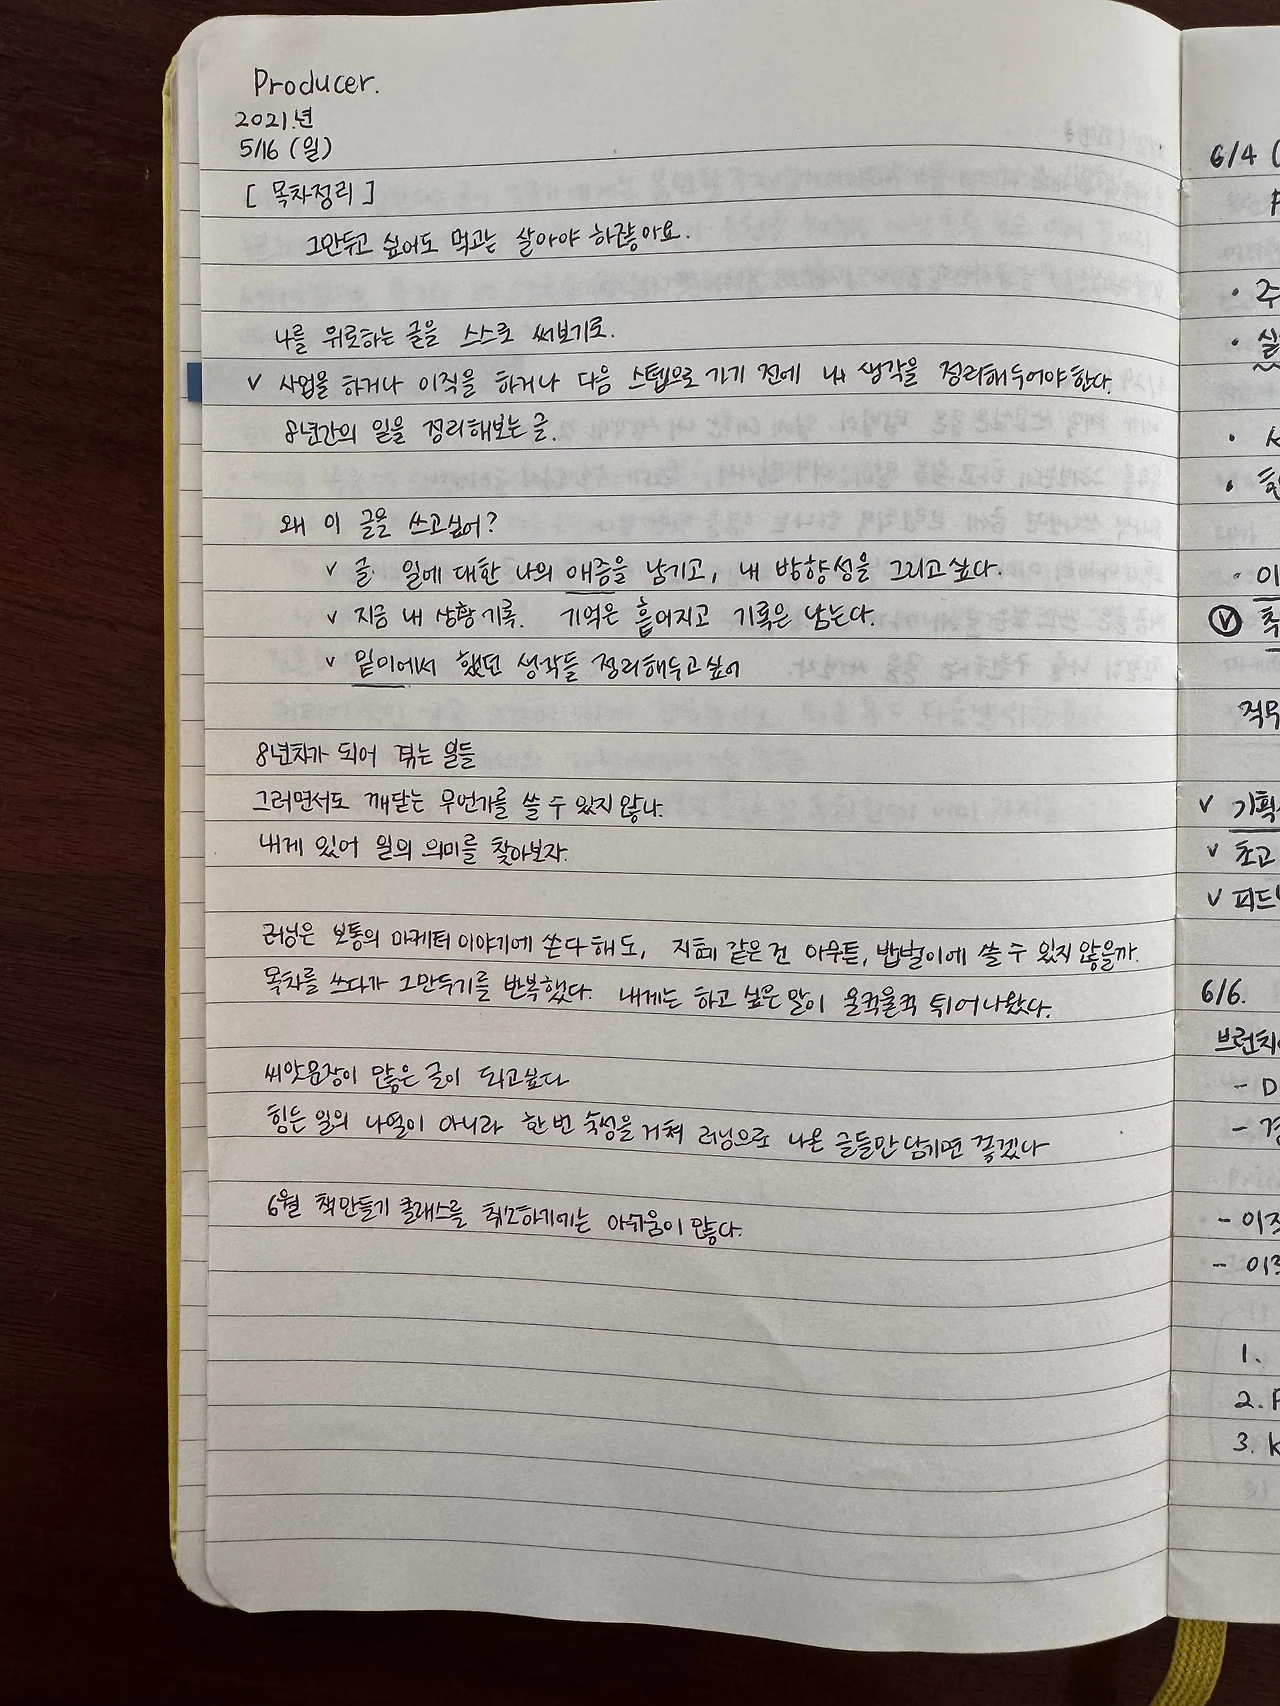 Producer.
2021.년
5/16 (일)
[ 목차정리 ]
그만두고 싶어도 먹고는 살아야 하잖아요.
나를 위로하는 글을 스스로 써보기로.
v 사업을 하거나 이직을 하거나 다음 스텝으로 가기 전에 내 생각을 정리해두어야한다.
8년간의 일을 정리해보는 글.
왜 이 글을 쓰고싶어?
v 글. 일에 대한 나의 애증을 남기고, 내 방향성을 그리고싶다.
v 지금 내 상황 기록. 기억은 흩어지고 기록은 남는다.
v 밑미에서 했던 생각들 정리해두고싶어
8년차가 되어 겪는 일들
그러면서도 깨닫는 무언가를 쓸 수 있지 않나.
내게 있어 일의 의미를 찾아보자.
러닝은 보통의 마케터 이야기에 쓴다 해도, 지혜 같은 건 아무튼, 밥벌이에 쓸 수 있지 않을까.
목차를 쓰다가 그만두기를 반복했다. 내게는 하고 싶은 말이 울컥울컥 튀어나왔다.
씨앗문장이 많은 글이 되고싶다
힘든 일의 나열이 아니라 한 번 숙성을 거쳐 러닝으로 나온 글들만 남기면 좋겠다
6월 책만들기 클래스를 취소하기에는 아쉬움이 많다.
6/4
6/6.
1.
2.
3.